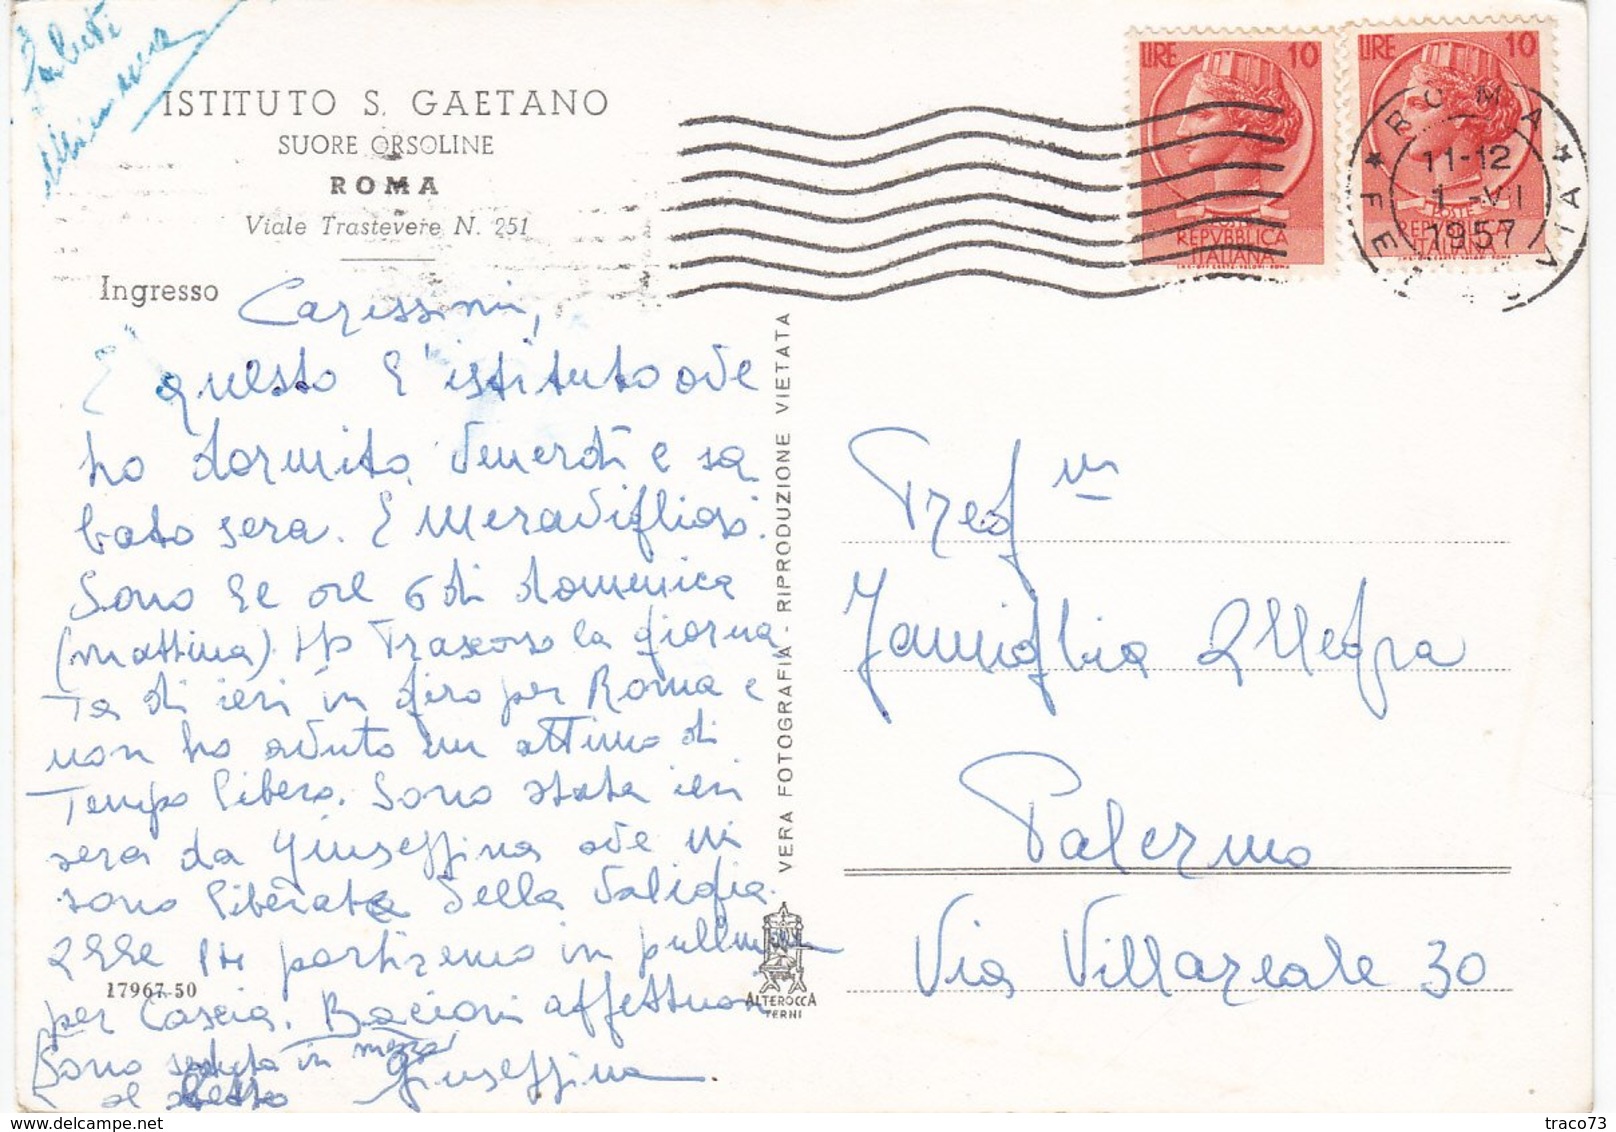 Saluti
ISTITUTO S. GAETANO
SUORE ORSOLINE
ROMA
Viale Trastevere N. 251
Ingresso
Carissimi,
È questo l'istituto ove
ho dormito venerdì e sa
bato sera. È meraviglioso.
Sono le ore 6 di domenica
(mattina). Ho trascorso la giorna
ta di ieri in giro per Roma e
non ho avuto un attimo di
tempo libero. Sono stata ieri
sera da Giuseffina ove mi
sono liberata della valigia.
Alle 14 partiremo in pullman
per Cascia. Bacioni affettuosi
Giuseffina
(Sono seduta in mezzo
al letto
17967-50
VERA FOTOGRAFIA - RIPRODUZIONE VIETATA
ALTEROCCA
TERNI
LIRE 10
POSTE
REPVBBLICA
ITALIANA
I.P.S.-OFF. CARTE-VALORI-ROMA
LIRE 10
POSTE
REPVBBLICA
ITALIANA
I.P.S.-OFF. CARTE-VALORI-ROMA
ROMA
11-12
1-VII
1957
Pregma
Famiglia Allegra
Palermo
Via Villareale 30
traco73